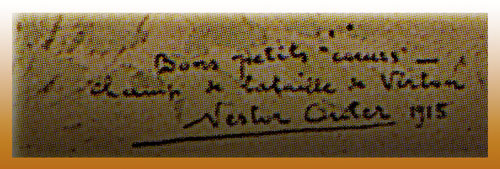 Bons petits "cœurs" —
champ de bataille de Virton
Nestor Outer 1915